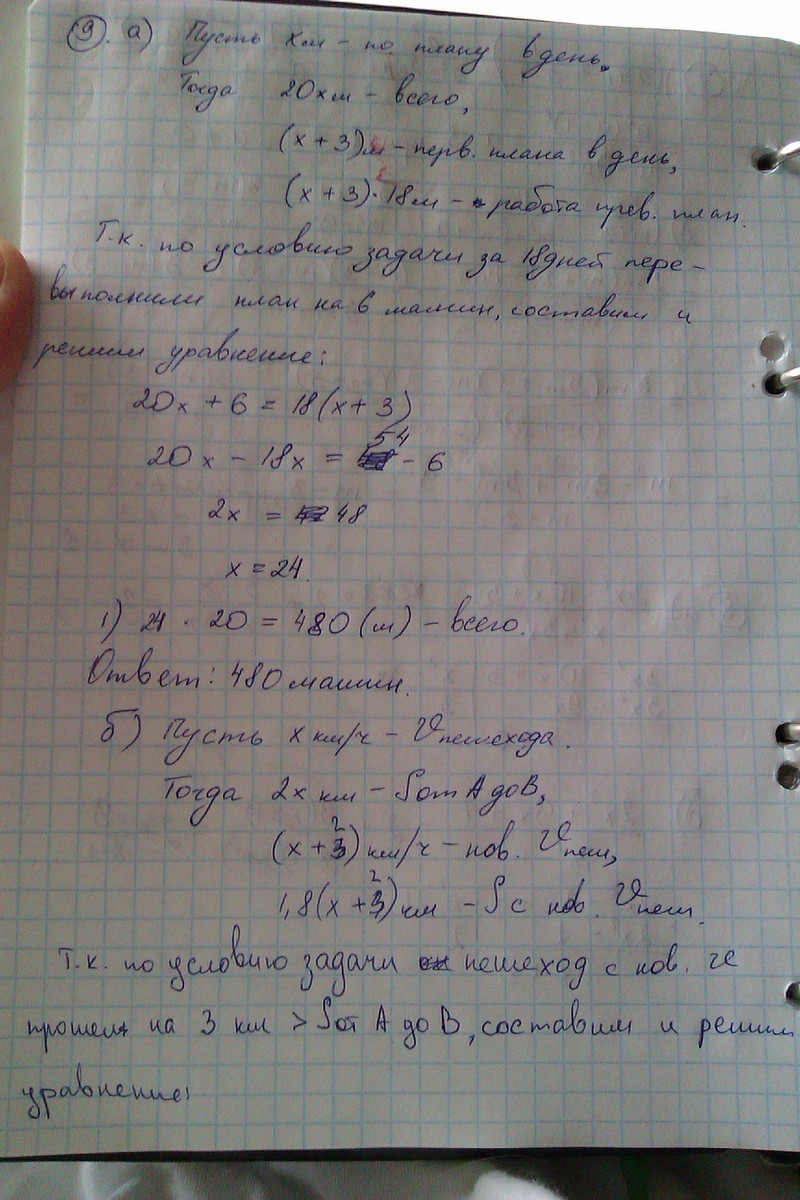 9. а) Пусть х м - по плану в день.
Тогда 20х м - всего,
(х + 3) м - перв. плана в день,
(х + 3) · 18 м - работа прев. план.
Т.к. по условию задачи за 18 дней пере-
выполнили план на 6 машин, составим и
решим уравнение:
20х + 6 = 18(х + 3)
20х - 18х = 54 - 6
2х = 48
х = 24.
1) 24 · 20 = 480 (м) - всего.
Ответ: 480 машин.
б) Пусть х км/ч - V пешехода.
Тогда 2х км - S от А до В,
(х + 2) км/ч - нов. V пеш,
1,8(х + 2) км - S с нов. V пеш.
Т.к. по условию задачи пешеход с нов.
прошел на 3 км > S от А до В, составим и решим
уравнение: